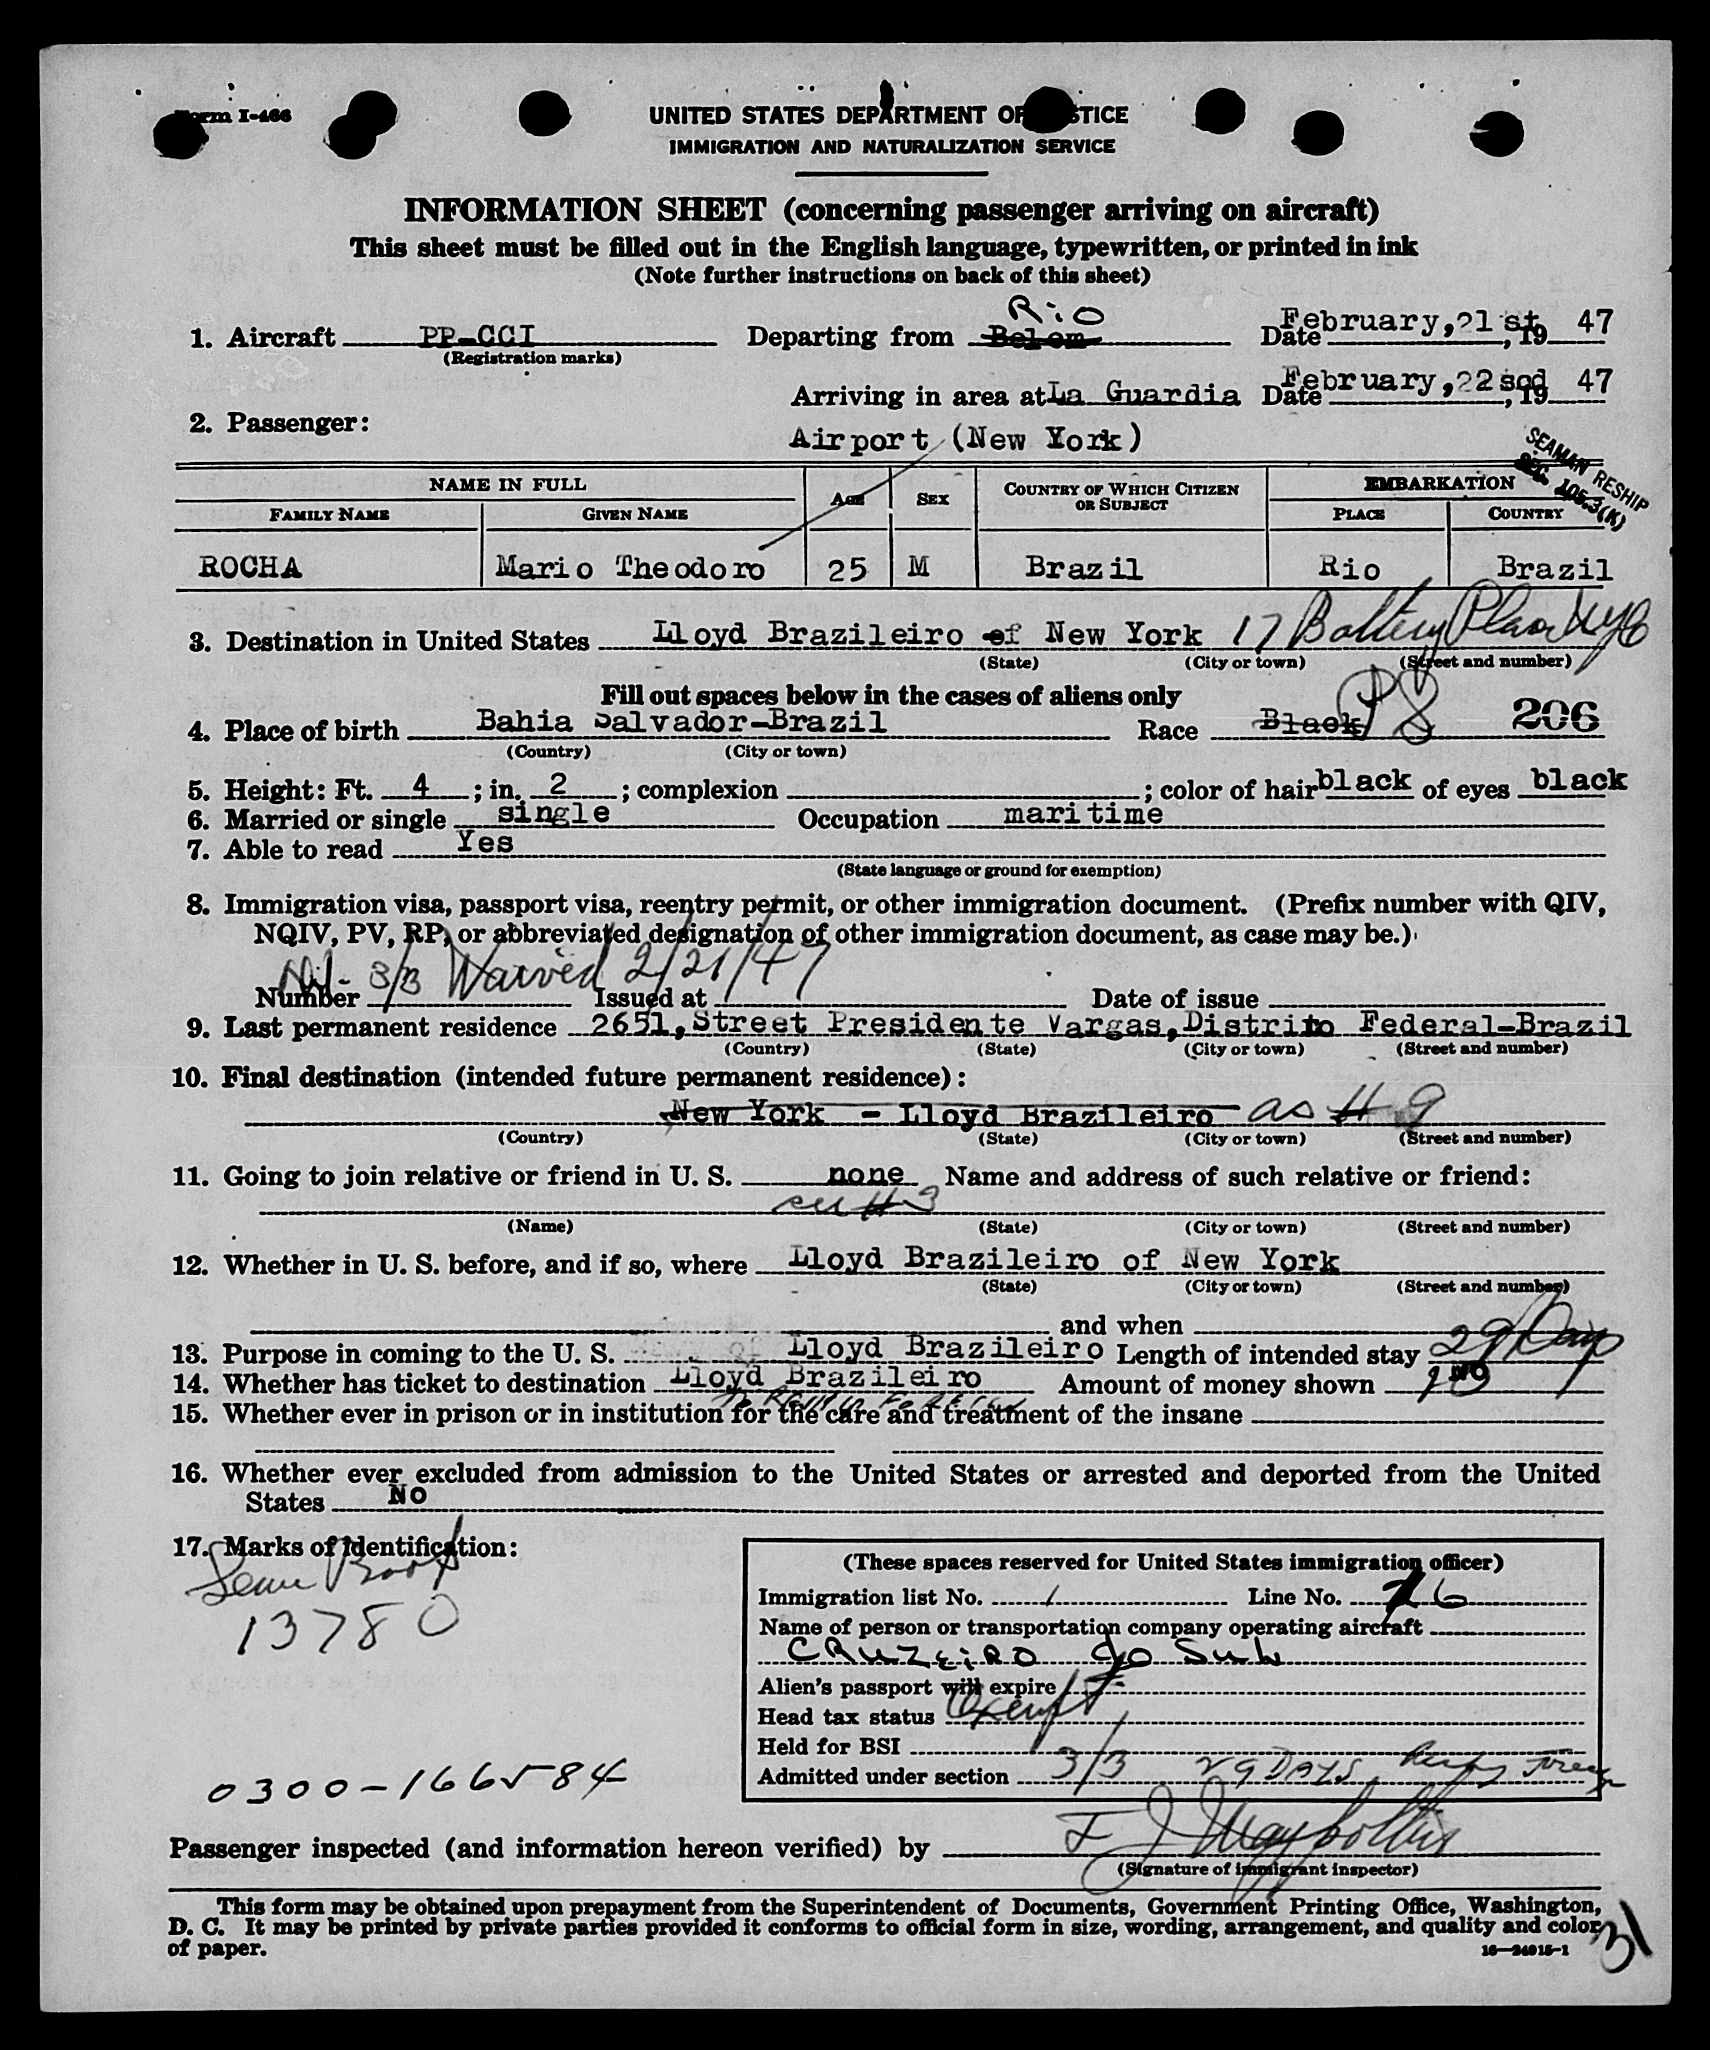 Form I-466
UNITED STATES DEPARTMENT OF JUSTICE
IMMIGRATION AND NATURALIZATION SERVICE
INFORMATION SHEET (concerning passenger arriving on aircraft)
This sheet must be filled out in the English language, typewritten, or printed in ink
(Note further instructions on back of this sheet)
Rio
1. Aircraft PP-CCI Departing from Belem Date February,21st, 1947
(Registration marks)
Arriving in area at La Guardia Date February,22scd, 1947
2. Passenger: Airport (New York)
SEAMAN RESHIP
SEC. 105.3(K)
NAME IN FULL AGE SEX COUNTRY OF WHICH CITIZEN OR SUBJECT EMBARKATION
FAMILY NAME GIVEN NAME PLACE COUNTRY
ROCHA Mario Theodoro 25 M Brazil Rio Brazil
3. Destination in United States Lloyd Brazileiro of New York 17 Battery Place NYC
(State) (City or town) (Street and number)
Fill out spaces below in the cases of aliens only
4. Place of birth Bahia Salvador-Brazil Race Black PS 206
(Country) (City or town)
5. Height: Ft. 4; in. 2; complexion ; color of hair black of eyes black
6. Married or single single Occupation maritime
7. Able to read Yes
(State language or ground for exemption)
8. Immigration visa, passport visa, reentry permit, or other immigration document. (Prefix number with QIV,
NQIV, PV, RP, or abbreviated designation of other immigration document, as case may be.)
Nil - 3/3 Waived 2/21/47
Number Issued at Date of issue
9. Last permanent residence 2651,Street Presidente Vargas,Distrito Federal-Brazil
(Country) (State) (City or town) (Street and number)
10. Final destination (intended future permanent residence):
New York - Lloyd Brazileiro as # 9
(Country) (State) (City or town) (Street and number)
11. Going to join relative or friend in U. S. none Name and address of such relative or friend:
# 3
(Name) (State) (City or town) (Street and number)
12. Whether in U. S. before, and if so, where Lloyd Brazileiro of New York
(State) (City or town) (Street and number)
and when
13. Purpose in coming to the U. S. of Lloyd Brazileiro Length of intended stay 29 Days
14. Whether has ticket to destination Lloyd Brazileiro Amount of money shown
15. Whether ever in prison or in institution for the care and treatment of the insane NO
16. Whether ever excluded from admission to the United States or arrested and deported from the United
States NO
17. Marks of identification:
13780
(These spaces reserved for United States immigration officer)
Immigration list No. 1 Line No. 26
Name of person or transportation company operating aircraft
CRUZEIRO do Sul
Alien's passport will expire
Head tax status Exempt
Held for BSI
Admitted under section 3/3 29 DAYS
0300-166584
Passenger inspected (and information hereon verified) by F J
(Signature of immigrant inspector)
This form may be obtained upon prepayment from the Superintendent of Documents, Government Printing Office, Washington,
D. C. It may be printed by private parties provided it conforms to official form in size, wording, arrangement, and quality and color
of paper.
16—24915-1
31